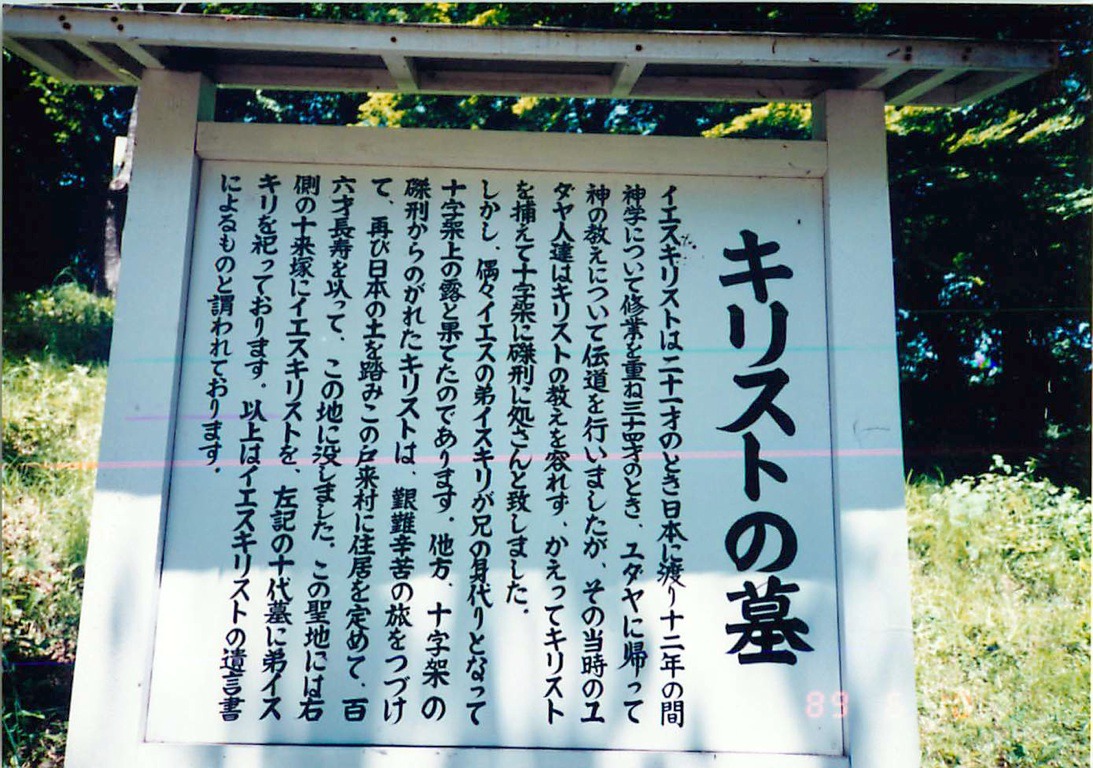 キリストの墓
イエスキリストは二十一才のとき日本に渡り十二年の間
神学について修業を重ね三十四才のとき、ユダヤに帰って
神の教えについて伝道を行いましたが、その当時のユ
ダヤ人達はキリストの教えを容れず、かえってキリスト
を捕えて十字架に磔刑に処さんと致しました.
しかし、偶々イエスの弟イスキリが兄の身代りとなって
十字架上の露と果てたのであります. 他方、十字架の
磔刑からのがれたキリストは、艱難辛苦の旅をつづけ
て、再び日本の土を踏みこの戸来村に住居を定めて、百
六才長寿を以って、この地に没しました. この聖地には右
側の十来塚にイエスキリストを、左記の十代墓に弟イス
キリを祀っております. 以上はイエスキリストの遺言書
によるものと謂われております.